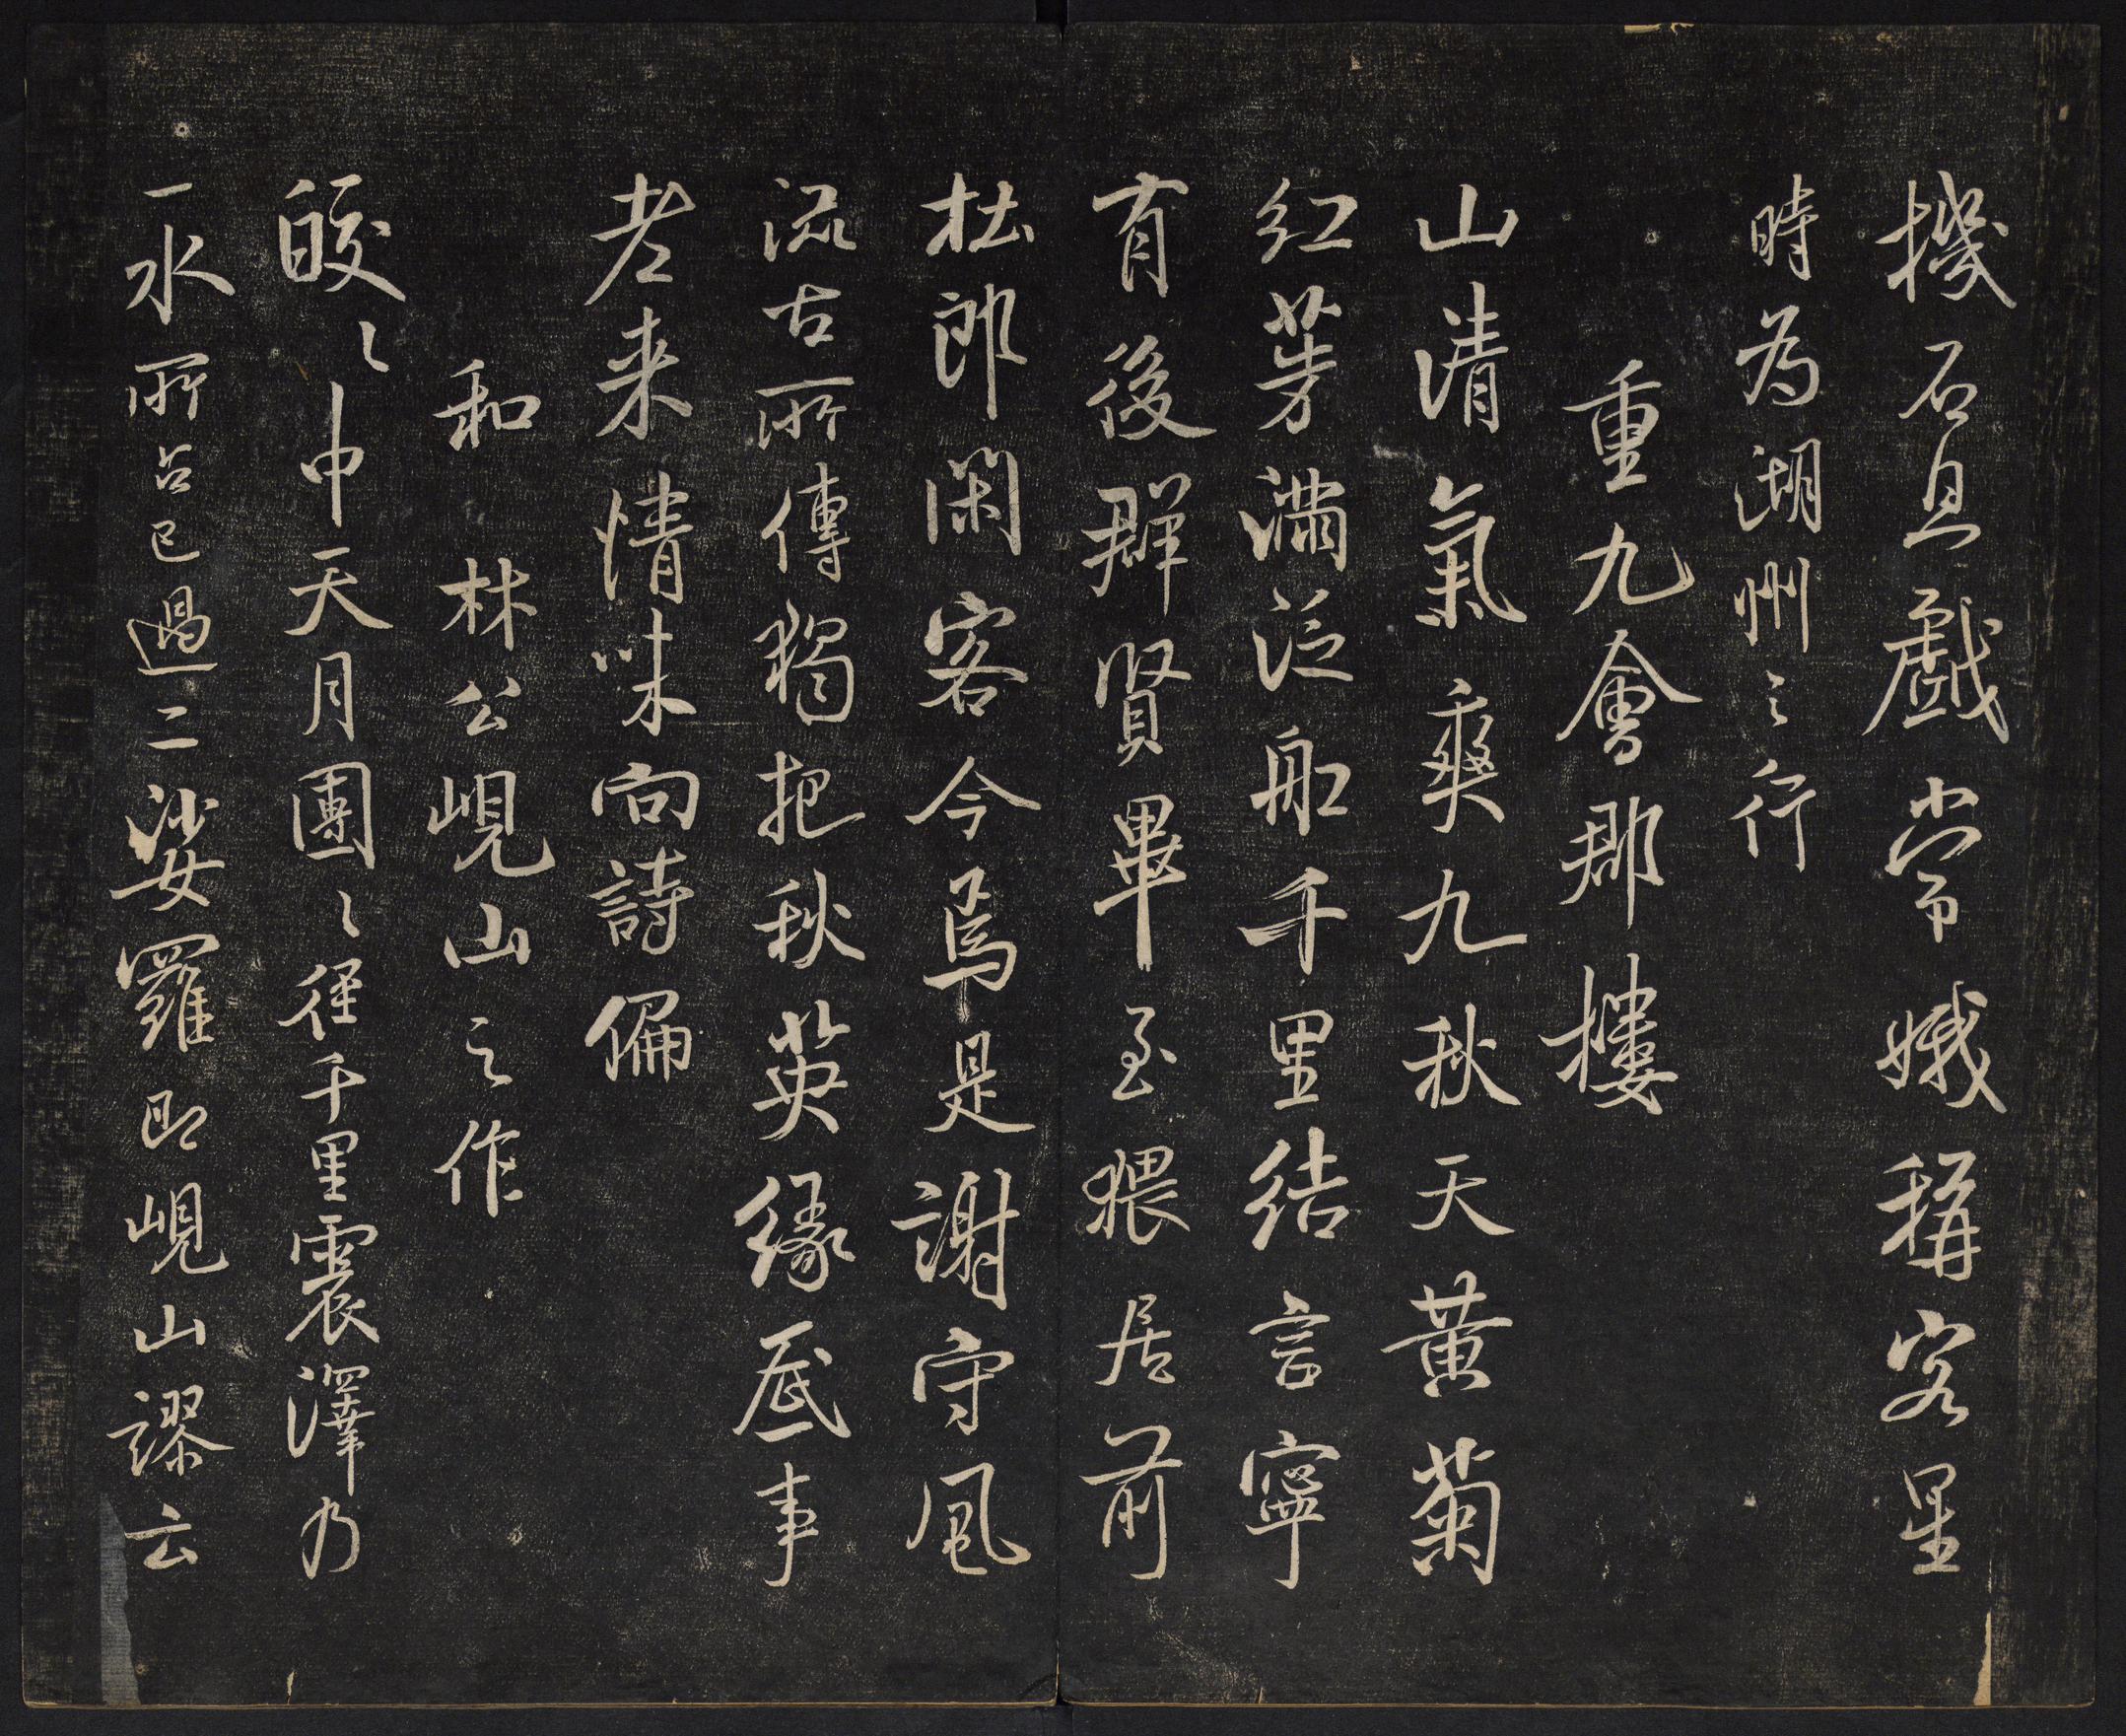 機石且戲常娥稱客星
時為湖州之行
重九會郡樓
山清氣爽九秋天黃菊
紅茱滿泛船千里結言寧
有後群賢畢至猥居前
杜郎閑客今焉是謝守風
流古所傳獨把秋英緣底事
老来情味向詩偏
和林公峴山之作
皎〻中天月團〻徑千里震澤乃
一水所占已過二娑羅即峴山謬云